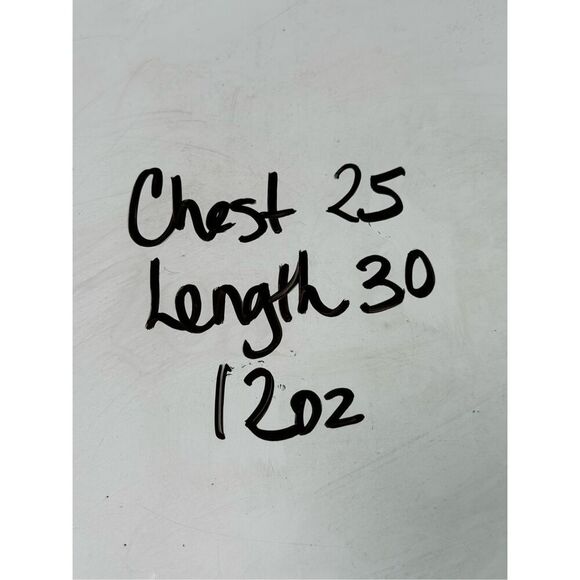 Chest 25
Length 30
12oz